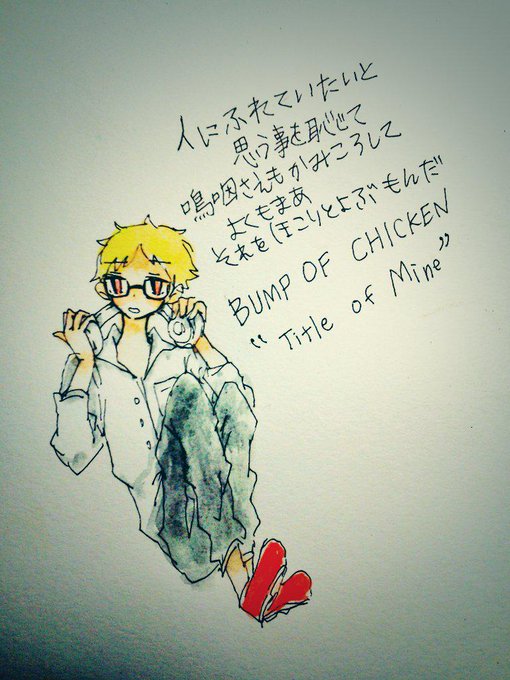 人にふれていたいと
思う事を恥じて
嗚咽さえもかみころして
よくもまあ
それをほこりとよぶもんだ
BUMP OF CHICKEN
"Title of Mine"